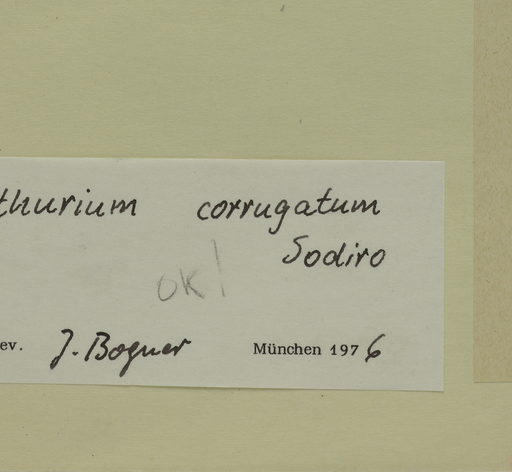 thurium corrugatum
Sodiro
OK!
ev. J. Bogner München 1976